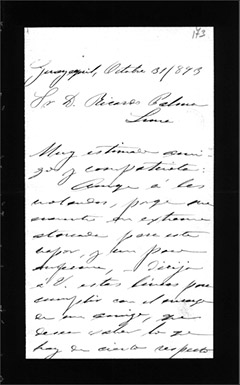 173
Guayaquil, Octubre 31/893
Sr D. Ricardo Palma
Lima
Muy estimado ami-
go y compatriota:
Aunque a las
volandas, porque me
encuentro en extremo
atareado por este
vapor, y un poco
enfermo, dirijo
á U. estas líneas para
cumplir con el encargo
de un amigo, que
desea saber lo que
hay de cierto respecto